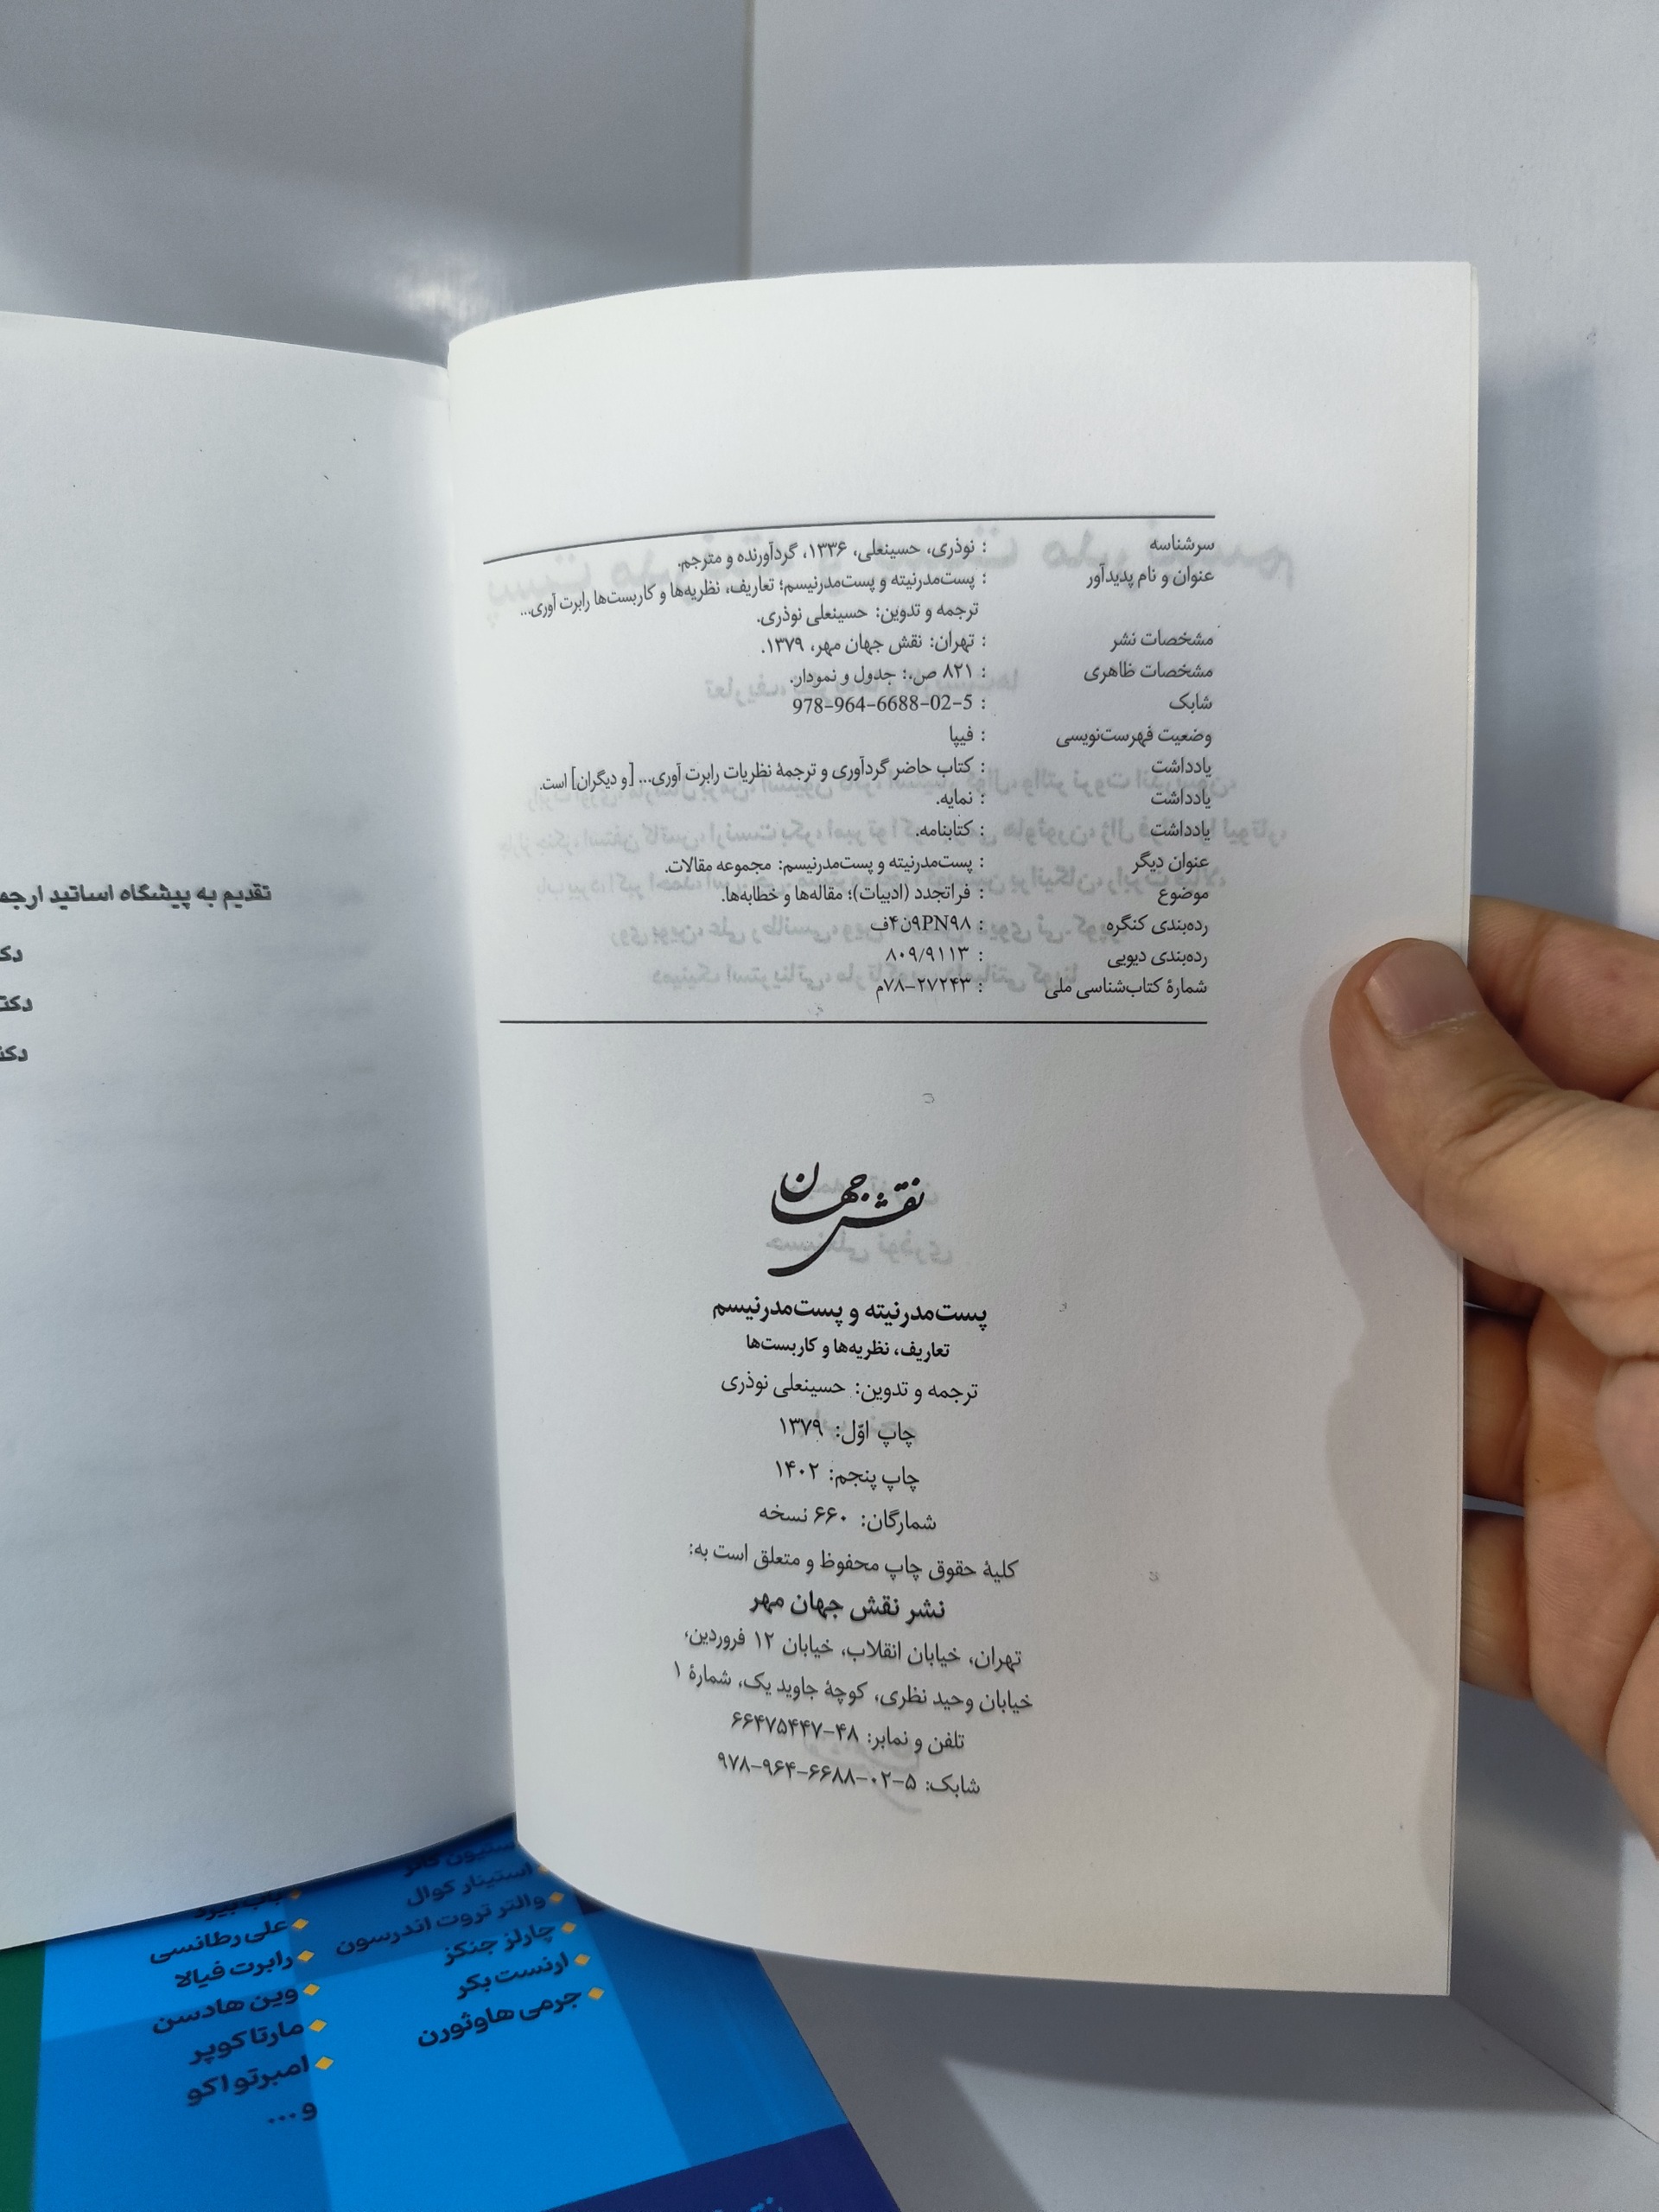 سرشناسه : نوذری، حسینعلی، ۱۳۳۶، گردآورنده و مترجم.
عنوان و نام پدیدآور : پست‌مدرنیته و پست‌مدرنیسم؛ تعاریف، نظریه‌ها و کاربست‌ها رابرت آوری...
ترجمه و تدوین: حسینعلی نوذری.
مشخصات نشر : تهران: نقش جهان مهر، ۱۳۷۹.
مشخصات ظاهری : ۸۲۱ ص.: جدول و نمودار.
شابک : 978-964-6688-02-5
وضعیت فهرست‌نویسی : فیپا
یادداشت : کتاب حاضر گردآوری و ترجمهٔ نظریات رابرت آوری... [و دیگران] است.
یادداشت : نمایه.
یادداشت : کتابنامه.
عنوان دیگر : پست‌مدرنیته و پست‌مدرنیسم: مجموعه مقالات.
موضوع : فراتجدد (ادبیات)؛ مقاله‌ها و خطابه‌ها.
رده‌بندی کنگره : ۹PN۹۸ن۴ف
رده‌بندی دیویی : ۸۰۹/۹۱۱۳
شمارهٔ کتاب‌شناسی ملی : ۲۷۲۴۳-۷۸م
نقش جهان
پست‌مدرنیته و پست‌مدرنیسم
تعاریف، نظریه‌ها و کاربست‌ها
ترجمه و تدوین: حسینعلی نوذری
چاپ اوّل: ۱۳۷۹
چاپ پنجم: ۱۴۰۲
شمارگان: ۶۶۰ نسخه
کلیهٔ حقوق چاپ محفوظ و متعلق است به:
نشر نقش جهان مهر
تهران، خیابان انقلاب، خیابان ۱۲ فروردین،
خیابان وحید نظری، کوچهٔ جاوید یک، شمارهٔ ۱
تلفن و نمابر: ۴۸-۶۶۴۷۵۴۴۷
شابک: ۵-۰۲-۶۶۸۸-۹۶۴-۹۷۸
تقدیم به پیشگاه اساتید
استینار کوال
والتر تروت اندرسون
چارلز جنکز
ارنست بکر
جرمی هاوثورن
باب بیرد
علی رطانسی
رابرت فیالا
وین هادسن
مارتا کوپر
امبرتو اکو
و ...